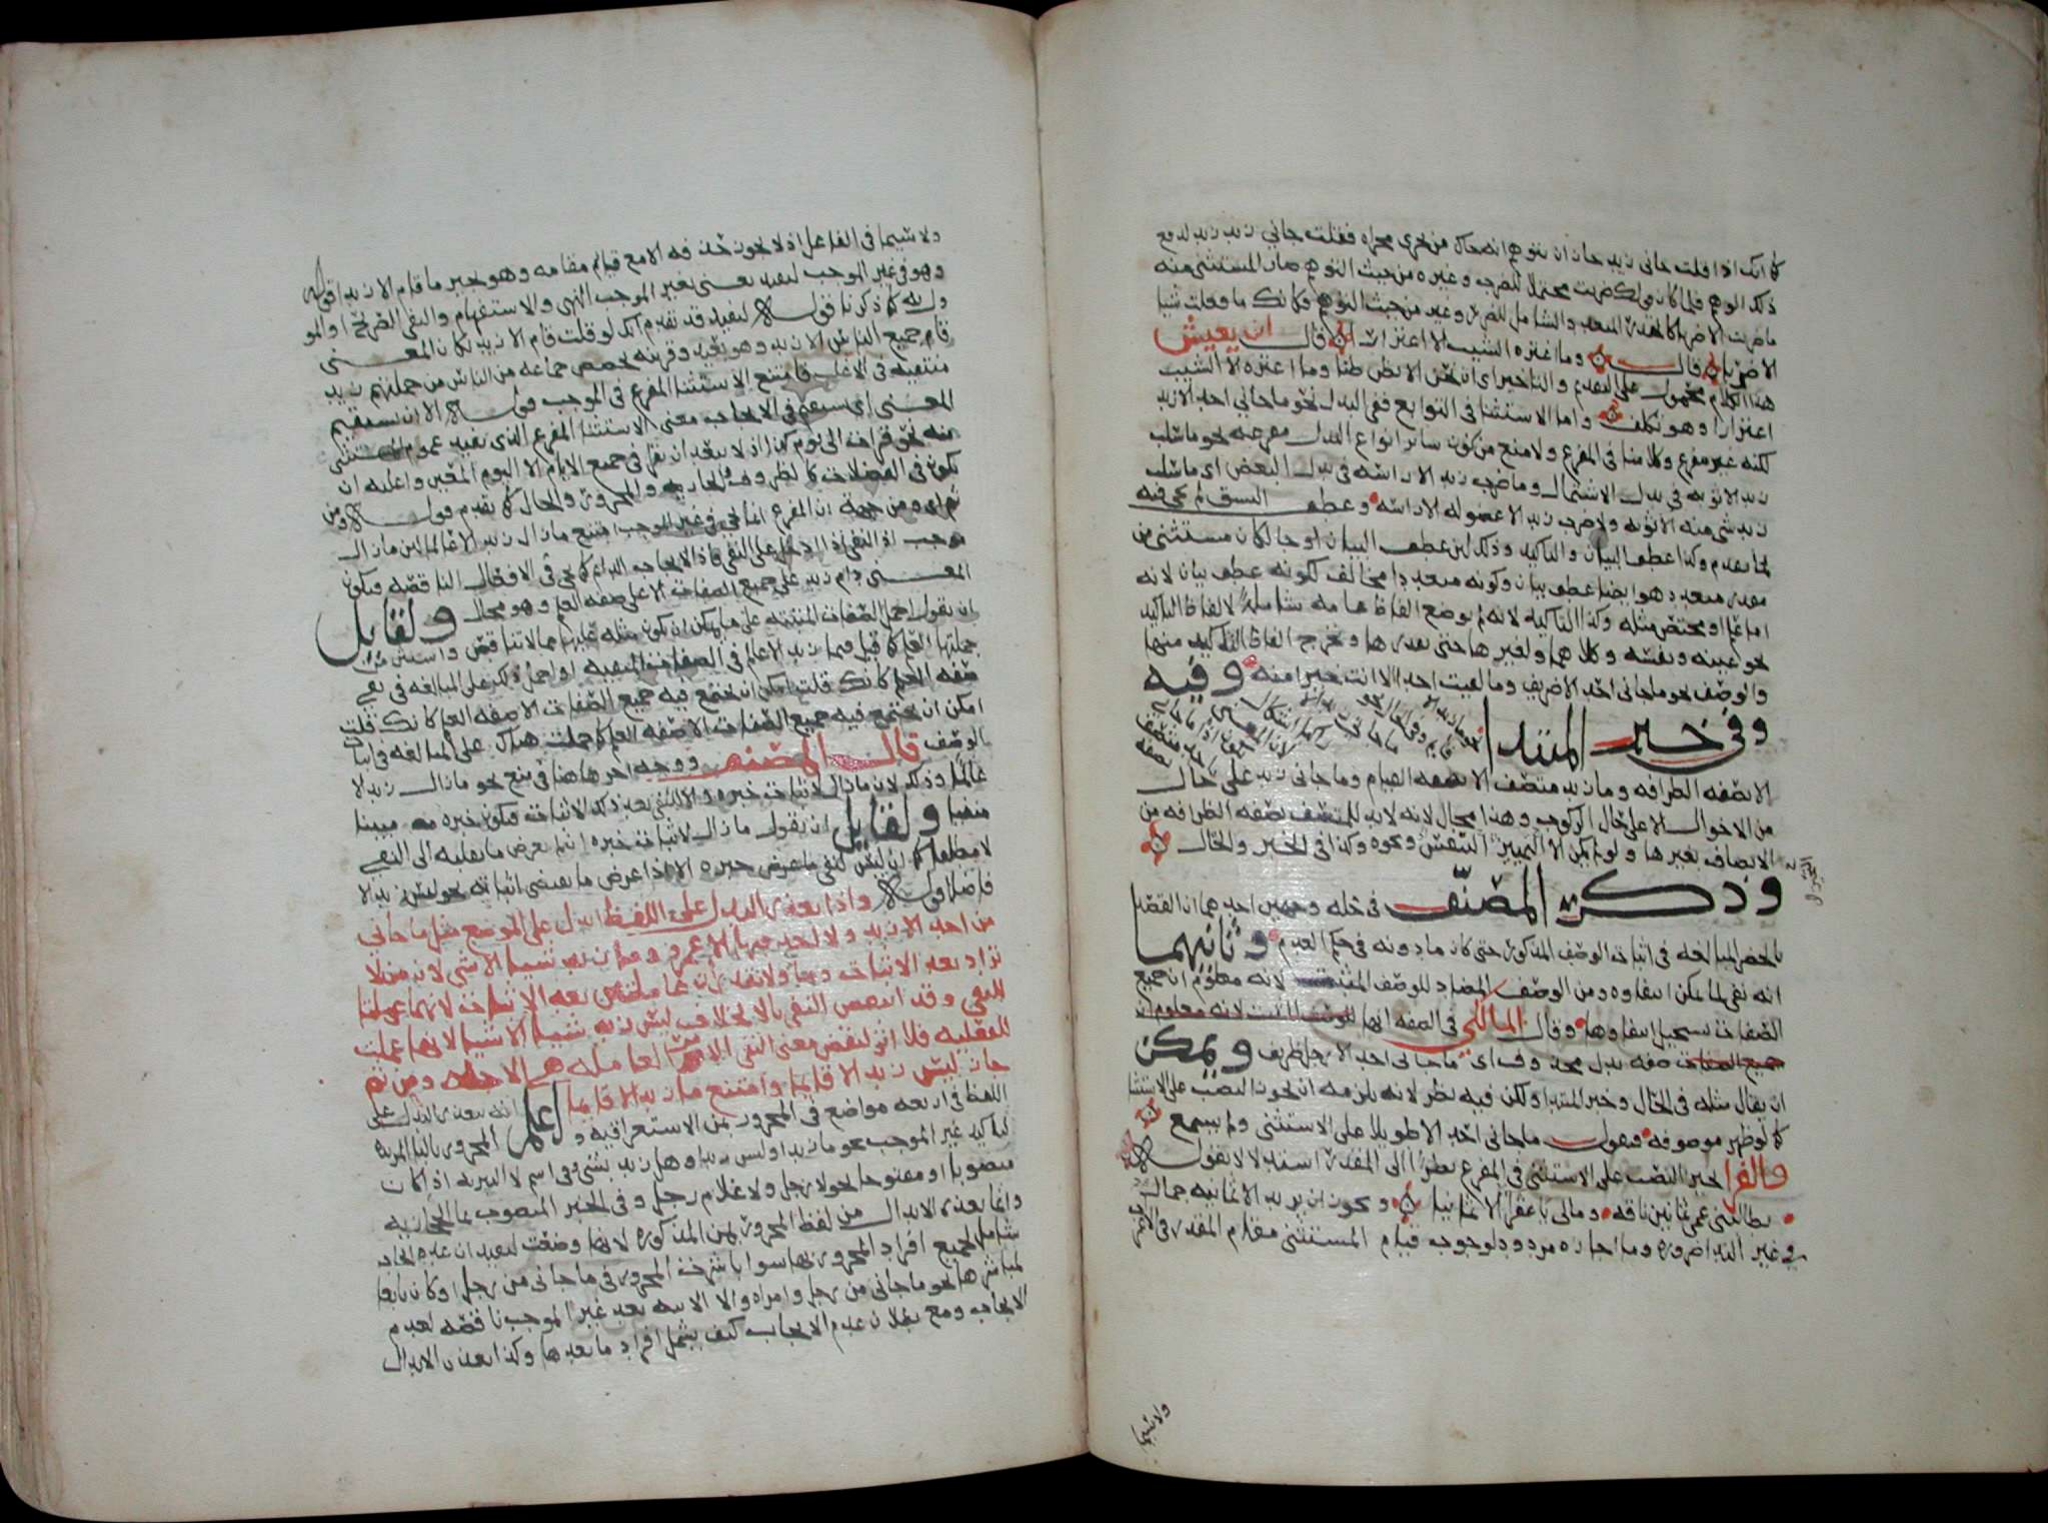 كما انك اذا قلت جاني زيد جاز ان يتوهم انه جاك من يجري مجراه فقلت جاني زيد زيد لدفع
ذلك الوهم فلما كان قولك ضربت محتملا للضرب وغيره من حيث التوهم صار المستثنى منه
ما ضربت الا ضربا كالمتعدد الشامل للضرب وغيره من حيث التوهم فكانك ما فعلت شيا
الا ضربا قال وما اغتره الشيب الا اغترارا قال ابن يعيش
هذا الكلام محمول على التقديم والتاخير اي ان نحن الا نظن ظنا وما اغتره الا الشيب
اغترارا وهو تكلف واما الاستثنا في التوابع ففي البدل نحو ما جاني احد الا زيد
لكنه غير مفرغ وكلامنا في المفرغ ولا منع من كون ساير انواع البدل مفرغه نحو ما سلب
زيد الا ثوبه في بدل الاشتمال وما ضرب زيد الا راسه في بدل البعض اي ما سلب
زيد شي منه الا ثوبه ولا ضرب زيد الا عضو له الا راسه وعطف النسق لم يجي فيه
لما تقدم وكذا عطف البيان والتاكيد وذلك لان عطف البيان لو جا لكان مستثنى من
مقدر متعدد هو ايضا عطف بيان وكونه متعددا مخالف لكونه عطف بيان لانه
اما علم او مختص مثله وكذا التاكيد لانه لم يوضع الفاظ عامه شامله لالفاظ التاكيد
نحو عينه ونفسه وكلاهما ولغيرها حتى نقدرها ونخرج الفاظ التاكيد منها
والوصف نحو ما جاني احد الا ظريف وما لقيت احدا الا انت خير منه وفيه
وفي خبر المبتدا
الا بصفه الظرافه وما زيد متصف الا بصفه القيام وما جاني زيد على حال
من الاحوال الا على حال الركوب وهذا محال لانه لا بد للمتصف بصفه الظرافه من
الاتصاف بغيرها ولو لم يكن الا التحيز والتنفس ونحوه وكذا في الخبر والحال
وذكر المصنف في حله وجهين احدهما ان القصد
بالحصر المبالغه في اثبات الوصف المذكور حتى كان ما دونه في حكم العدم وثانيهما
انه نفي لما يمكن انتفاوه من الوصف المضاد للوصف المثبت لانه معلوم ان جميع
الصفات يستحيل انتفاوها وقال المالكي في الصفه انها
صفه بدل محذوف اي ما جاني احد الا رجل ظريف ويمكن
ان يقال مثله في الحال وخبر المبتدا ولكن فيه نظر لانه يلزمه ان يجوز النصب على الاستثنا
كما لو ظهر موصوفه فتقول ما جاني احد الا طويلا على الاستثنى ولم يسمع
والفرا يجيز النصب على الاستثنى في المفرغ نظرا الى المقدر استدلالا بقوله
يطالبني عمي ثمانين ناقه وما لي يا عفرا الا ثمانيا ويجوز ان يريد الا ثمانيه جمال
في غير الندا ضروره وما اجازه مردود لوجوب قيام المستثنى مقام المقدر في الاعراب
ولا سيما
ولا سيما في الفاعل اذ لا يجوز حذفه الا مع قيام مقامه وهو يجيز ما قام الا زيدا قوله
وهو في غير الموجب ليفيد يعني بغير الموجب النهي والاستفهام والنفي الصريح او المو
ول به كما ذكرنا قوله ليفيد قد تقدم انك لو قلت قام الا زيد لكان المعنى
قام جميع الناس الا زيد وهو بعيد وقرينه تخصص جماعه من الناس من جملتهم زيد
منتفيه في الاغلب فامتنع الاستثنا المفرغ في الموجب قوله الا ان يستقيم
المعنى اي يستقيم في الايجاب معنى الاستثنا المفرغ الذي يفيد عموم المستثنى
منه نحو قرات الى يوم كذا اذ لا يبعد ان يقرا في جميع الايام الا اليوم المعين واغلبه ان
يكون في الفضلات كالظروف والجار والمجرور والحال كما تقدم قوله ومن
ثم اي ومن جهه ان المفرغ انما يجي في غير الموجب امتنع ما زال زيد الا عالما لان ما زال
موجب اذ النفي اذا دخل على النفي افاد الايجاب الدايم كما يجي في الافعال الناقصه فيكون
المعنى دام زيد على جميع الصفات الا على صفه العلم وهو محال ولقايل
ان يقول احمل الصفات المثبته على ما يمكن ان يكون مثله عليها مما لا يتناقض واستثن من
جملتها العلم كما قيل في ما زيد الا عالم في الصفات المنفيه او احمل ذلك على المبالغه في نفي
صفه العلم كانك قلت امكن ان يجتمع فيه جميع الصفات الا صفه العلم كانك قلت
امكن ان يجتمع فيه جميع الصفات الا صفه العلم كما حملت هناك على المبالغه في اثبات
الوصف قال المصنف ووجه اخر هاهنا في منع نحو ما زال زيد الا
عالما وذلك لان ما زال لاثبات خبره والا للنفي بعد ذلك الاثبات فيكون خبره مثبتا
منفيا ولقايل ان يقول ما زال لاثبات خبره انما لم يعرض ما يقلبه الى النفي
لا مطلقا كما ان ليس لنفي خبره الا اذا عرض ما يقتضي اثباته نحو ليس زيد الا
فاضلا قوله واذا تعذر البدل على اللفظ ابدل على الموضع مثل ما جاني
من احد الا زيد ولا احد فيها الا عمرو وما زيد شيا الا شي لان من لا
تزاد بعد الاثبات وما ولا لا تقدران عاملتين بعد الاثبات لانهما عملتا
للنفي وقد انتقض النفي بالا بخلاف ليس زيد شيا الا شيا لانها عملت
للفعليه فلا اثر لنقض معنى النفي لبقا الامر العامله هي لاجله ومن ثم
جاز ليس زيد الا قايما وامتنع ما زيد الا قايما اعلم انه يتعذر البدل على
اللفظ في اربعه مواضع في المجرور بمن الاستغراقيه والمجرور بالبا المزيده
لتاكيد غير الموجب نحو ما زيد او ليس زيد او هل زيد بشي وفي اسم لا التبريه اذا كان
منصوبا او مفتوحا نحو لا رجل ولا غلام رجل وفي الخبر المنصوب بما الحجازيه
وانما تعذر الابدال من لفظ المجرور بمن المذكوره لانها وضعت لتفيد ان عدم الحاد
شامل لجميع افراد المجرور بها سوا باشرت المجرور في ما جاني من رجل او كان تابعا
لمباشرها نحو ما جاني من رجل وامراه والا الاتيه بعد غير الموجب ناقضه لعدم
الايجاب ومع بطلان عدم الايجاب كيف يشمل افراد ما بعدها وكذا تعذر الابدال